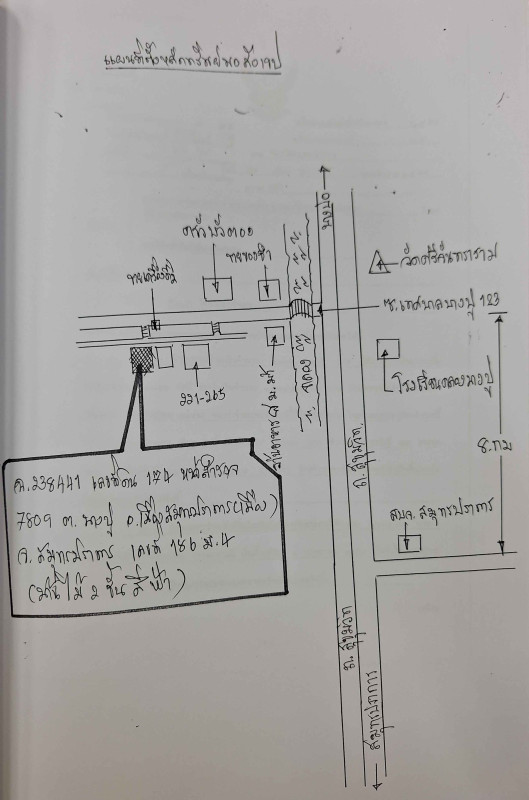 แผนที่ตั้งหลักทรัพย์พอสังเขป
บางบ่อ
ครัวบัวตอง
ขายของชำ
วัดศรีจันทาราม
ซ.เทศบาลบางปู 123
221-265
คลอง
โรงเรียนคลองบางปู
ถ.สุขุมวิท
8.กม
ฉ.238441 เลขที่ดิน 124 หน้าสำรวจ
7809 ต. บางปู อ.เมืองสมุทรปราการ(เมือง)
จ. สมุทรปราการ เลขที่ 186 ม.4
(บ้านไม้ 2 ชั้น สีฟ้า)
อบจ. สมุทรปราการ
ถ. สุขุมวิท
สมุทรปราการ